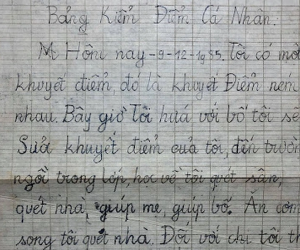 Bảng Kiểm Điểm Cá Nhân.
Hôm nay -9-12-1985. Tôi có một
khuyết điểm, đó là khuyết Điểm ném
nhau. Bây giờ Tôi hứa với bố tôi sẽ
Sưả khuyết điểm của tôi, đến trường
ngồi trong lớp, học về tôi quét sân,
quét nhà, giúp mẹ, giúp bố. Ăn cơm
song tôi quét nhà. Đối với chị tôi